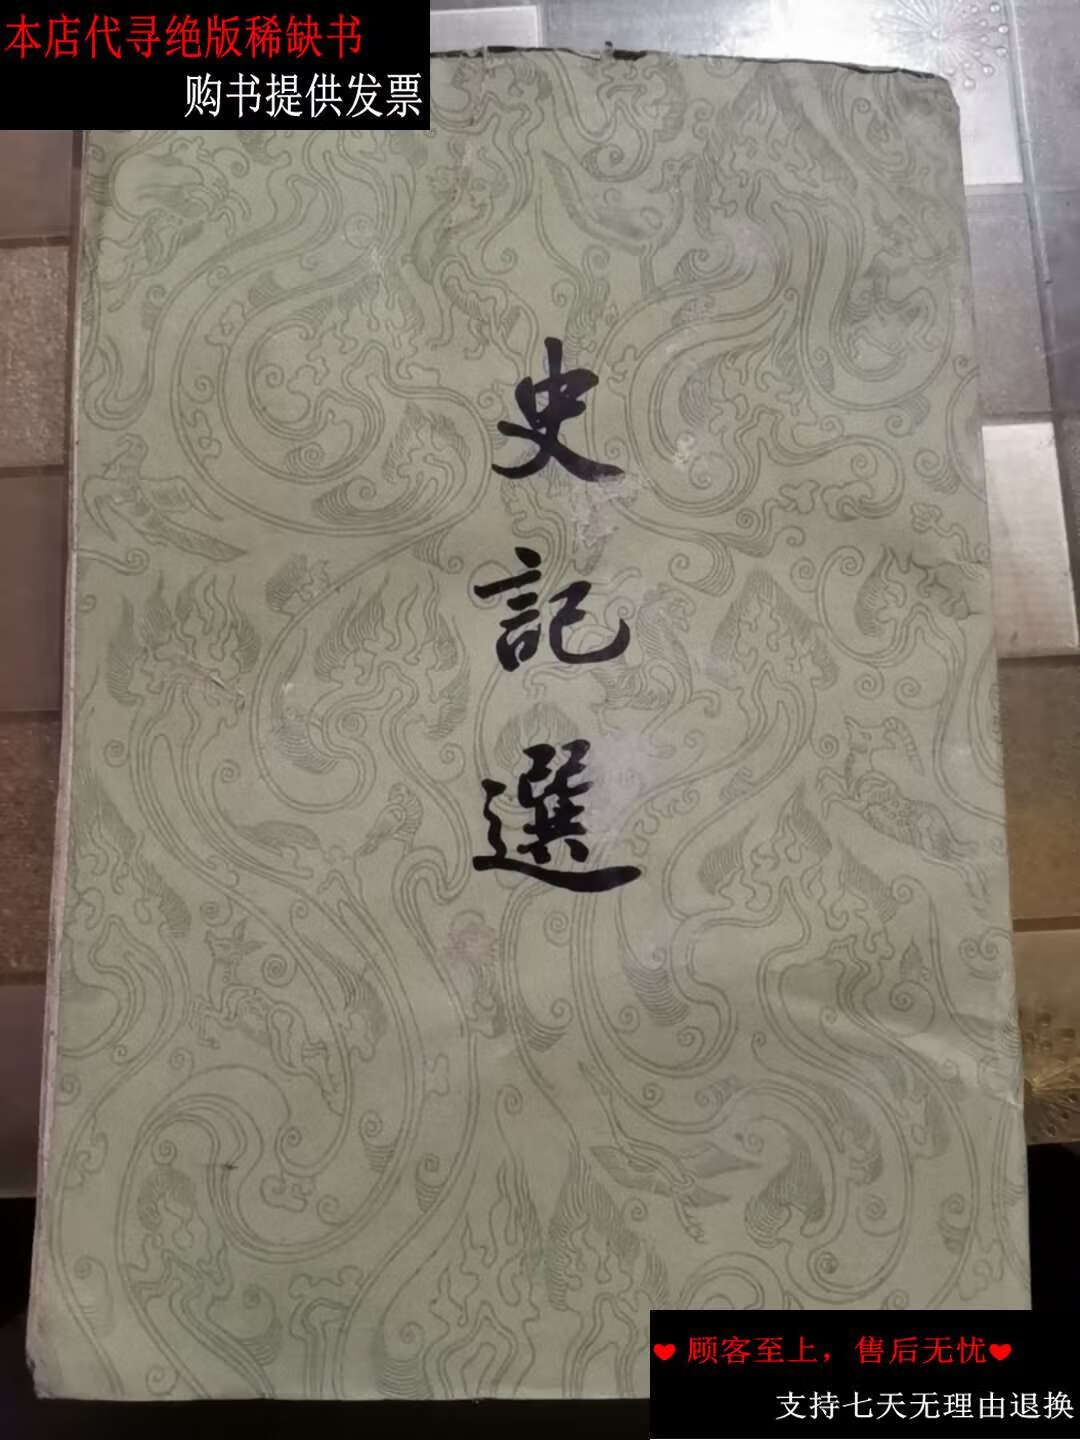 本店代寻绝版稀缺书
购书提供发票
史
記
選
❤顾客至上，售后无忧❤
支持七天无理由退换